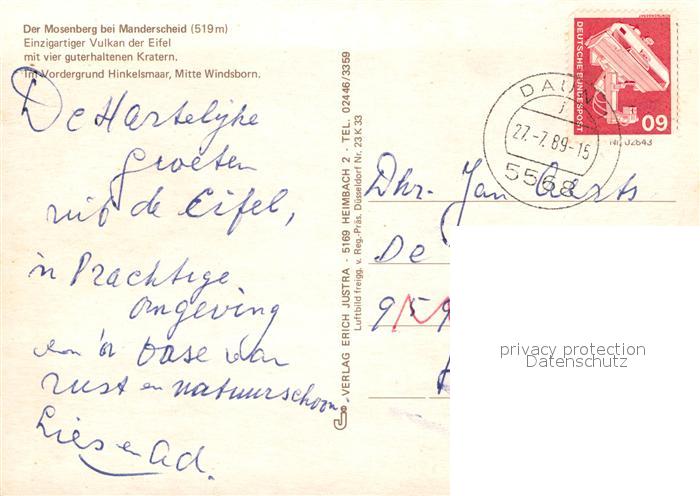 Der Mosenberg bei Manderscheid (519 m)
Einzigartiger Vulkan der Eifel
mit vier guterhaltenen Kratern.
Im Vordergrund Hinkelsmaar, Mitte Windsborn.
De Hartelijke
groeten
uit de Eifel,
in Prachtige
omgeving
een oase van
rust en natuurschoon.
Lies en Ad.
VERLAG ERICH JUSTRA - 5169 HEIMBACH 2 - TEL. 02446/3359
Luftbild freigg. v. Reg.-Präs. Düsseldorf Nr. 23 K 33
DEUTSCHE BUNDESPOST
60
DAUN
27.-7.89-15
5568
Dhr. Jan Aarts
De
privacy protection
Datenschutz